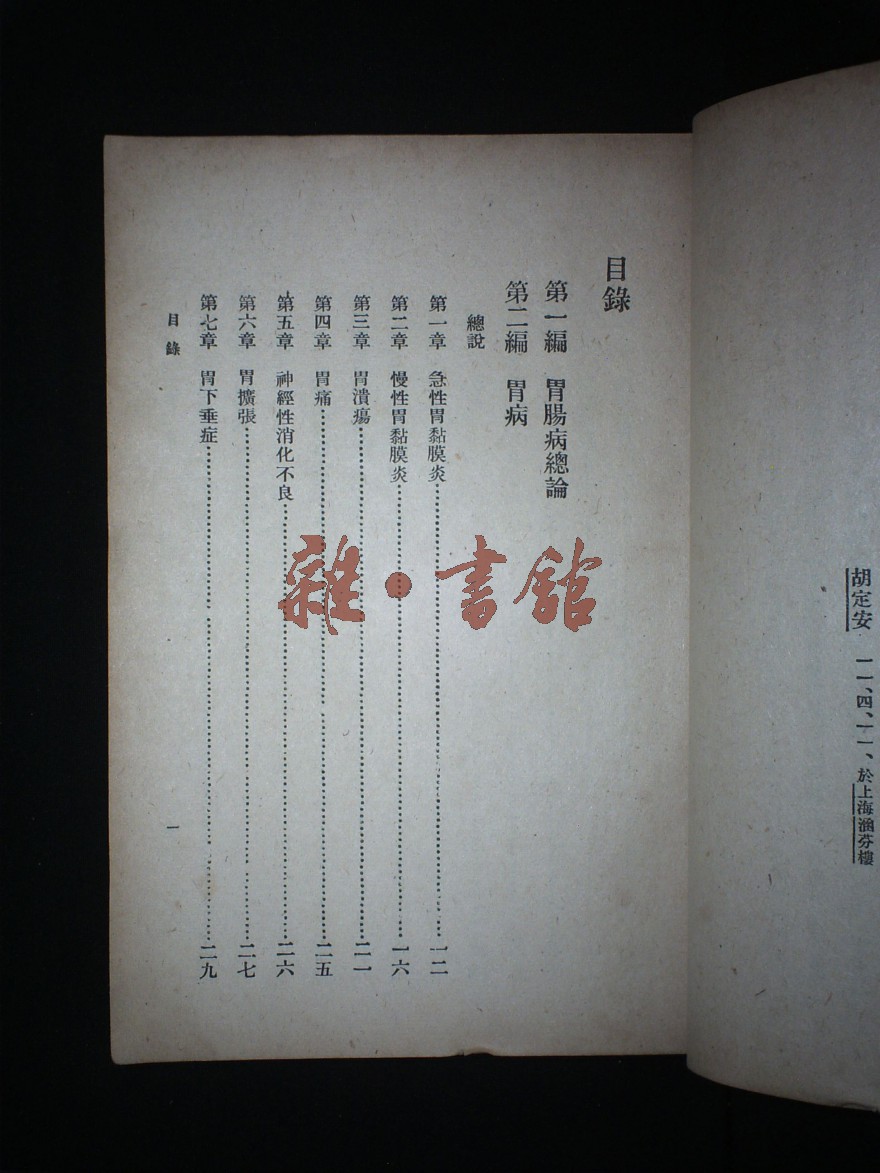 胡定安 一一、四、一一、於上海涵芬樓
目錄
第一編 胃腸病總論
第二編 胃病
總說
第一章 急性胃黏膜炎……一二
第二章 慢性胃黏膜炎……一六
第三章 胃潰瘍……二一
第四章 胃痛……二五
第五章 神經性消化不良……二六
第六章 胃擴張……二七
第七章 胃下垂症……二九
目錄 一
雜·書館